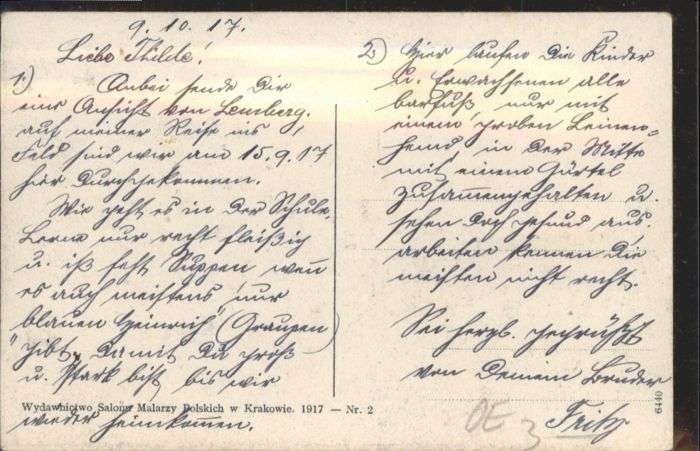 9. 10. 17.
Liebe Thilde!
1.) Anbei sende Dir
eine Ansicht von Lemberg,
auf meiner Reise ins
Feld sind wir am 15.9.17
hier durchgekommen.
Wie geht es in der Schule.
Lerne nur recht fleißig
u. iß fest Suppen, wenn
es auch meistens nur
"blauen Heinrich" (Graupen)
gibt, damit Du groß
u. stark bist bis wir
wieder heimkommen.
Wydawnictwo Salonu Malarzy Polskich w Krakowie. 1917 — Nr. 2
2.) Hier laufen die Kinder
u. Erwachsenen alle
barfuß nur mit
einem groben Leinen=
hemd, in der Mitte
mit einem Gürtel
zusammengehalten u.
sehen doch gesund aus.
arbeiten kennen die
meisten nicht recht.
Sei herzl. gegrüßt
von Deinem Bruder
Fritz
6440
OE
3